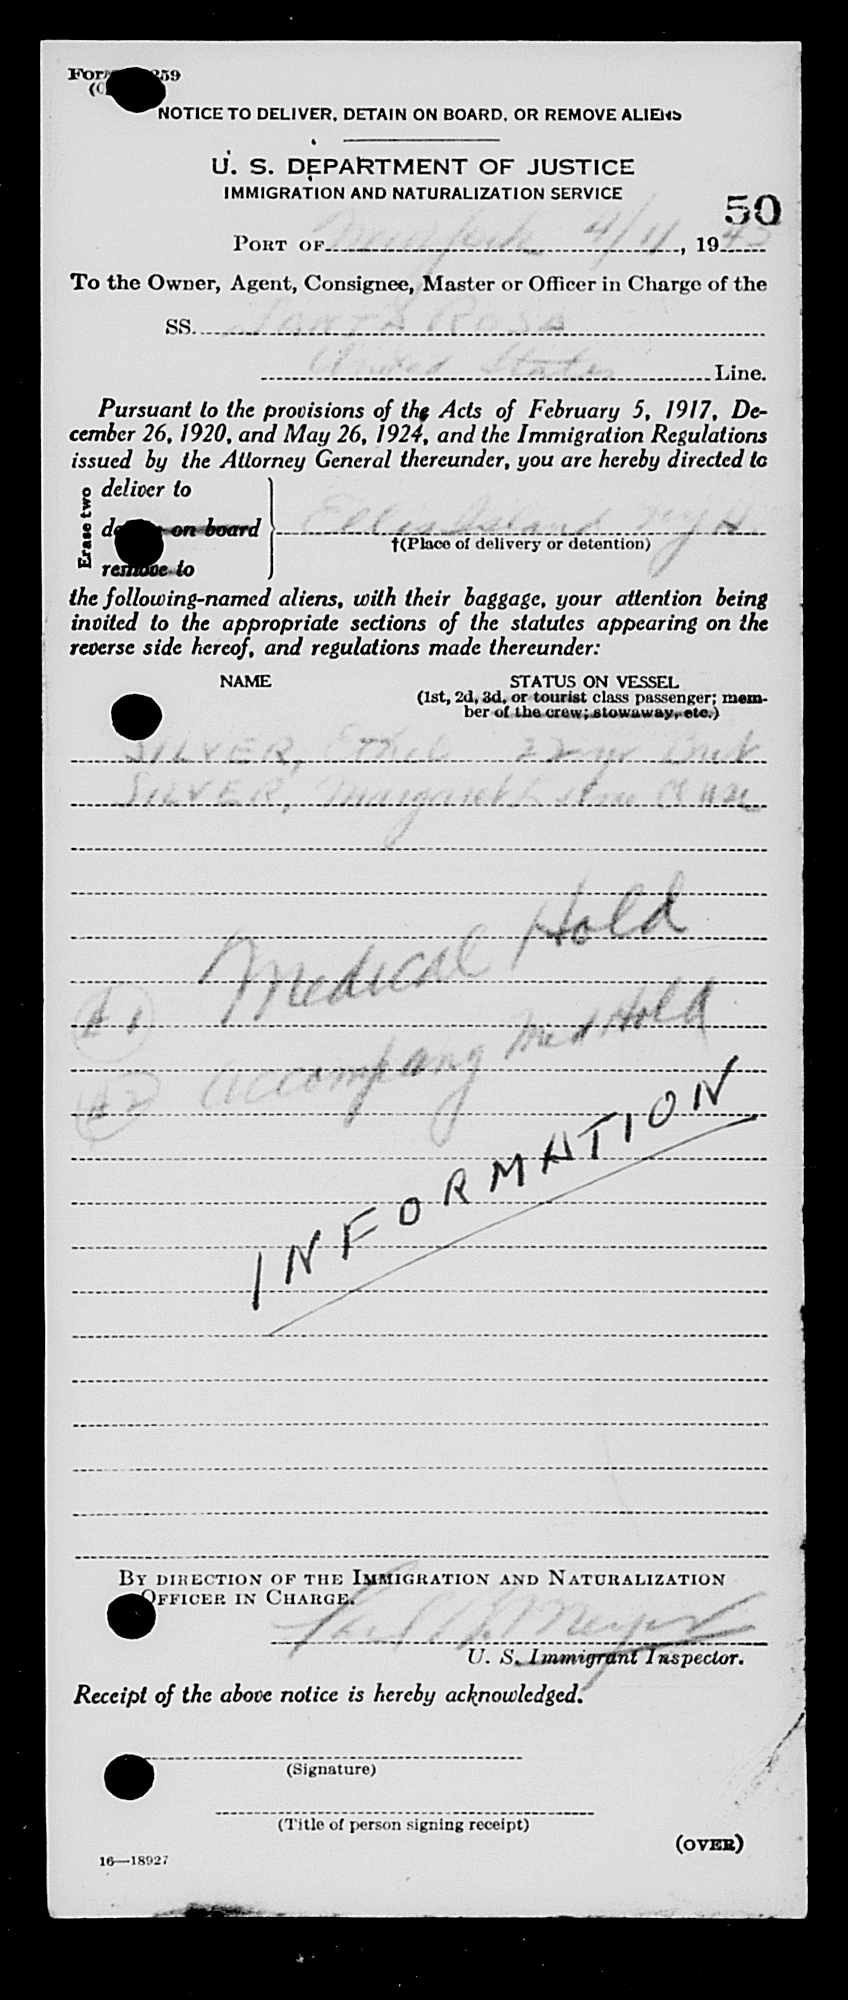 NOTICE TO DELIVER, DETAIN ON BOARD, OR REMOVE ALIENS
U. S. DEPARTMENT OF JUSTICE
IMMIGRATION AND NATURALIZATION SERVICE
50
PORT OF New York 4/11, 19
To the Owner, Agent, Consignee, Master or Officer in Charge of the
SS. SANTA ROSA
United States Line.
Pursuant to the provisions of the Acts of February 5, 1917, De-
cember 26, 1920, and May 26, 1924, and the Immigration Regulations
issued by the Attorney General thereunder, you are hereby directed to
Erase two
deliver to
on board
remove to
Ellis Island NYH.
†(Place of delivery or detention)
the following-named aliens, with their baggage, your attention being
invited to the appropriate sections of the statutes appearing on the
reverse side hereof, and regulations made thereunder:
NAME
STATUS ON VESSEL
(1st, 2d, 3d, or tourist class passenger; mem-
ber of the crew; stowaway, etc.)
SILVER, Ethel 22 yr Brit
SILVER, Margaret
Medical Hold
# 1
Accompany Med Hold
# 2
INFORMATION
BY DIRECTION OF THE IMMIGRATION AND NATURALIZATION
OFFICER IN CHARGE.
Meyer
U. S. Immigrant Inspector.
Receipt of the above notice is hereby acknowledged.
(Signature)
(Title of person signing receipt)
(OVER)
16—18927